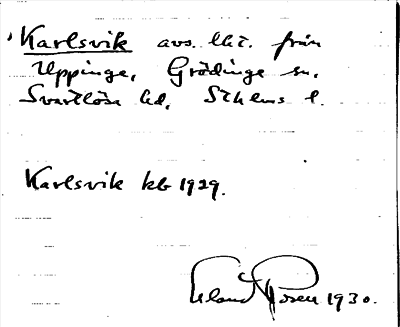 Karlsvik avs. lht. från
Uppinge, Grödinge sn.
Svartlösa hd, Sthlms l.
Karlsvik kb 1929.
Erland Rosen 1930.